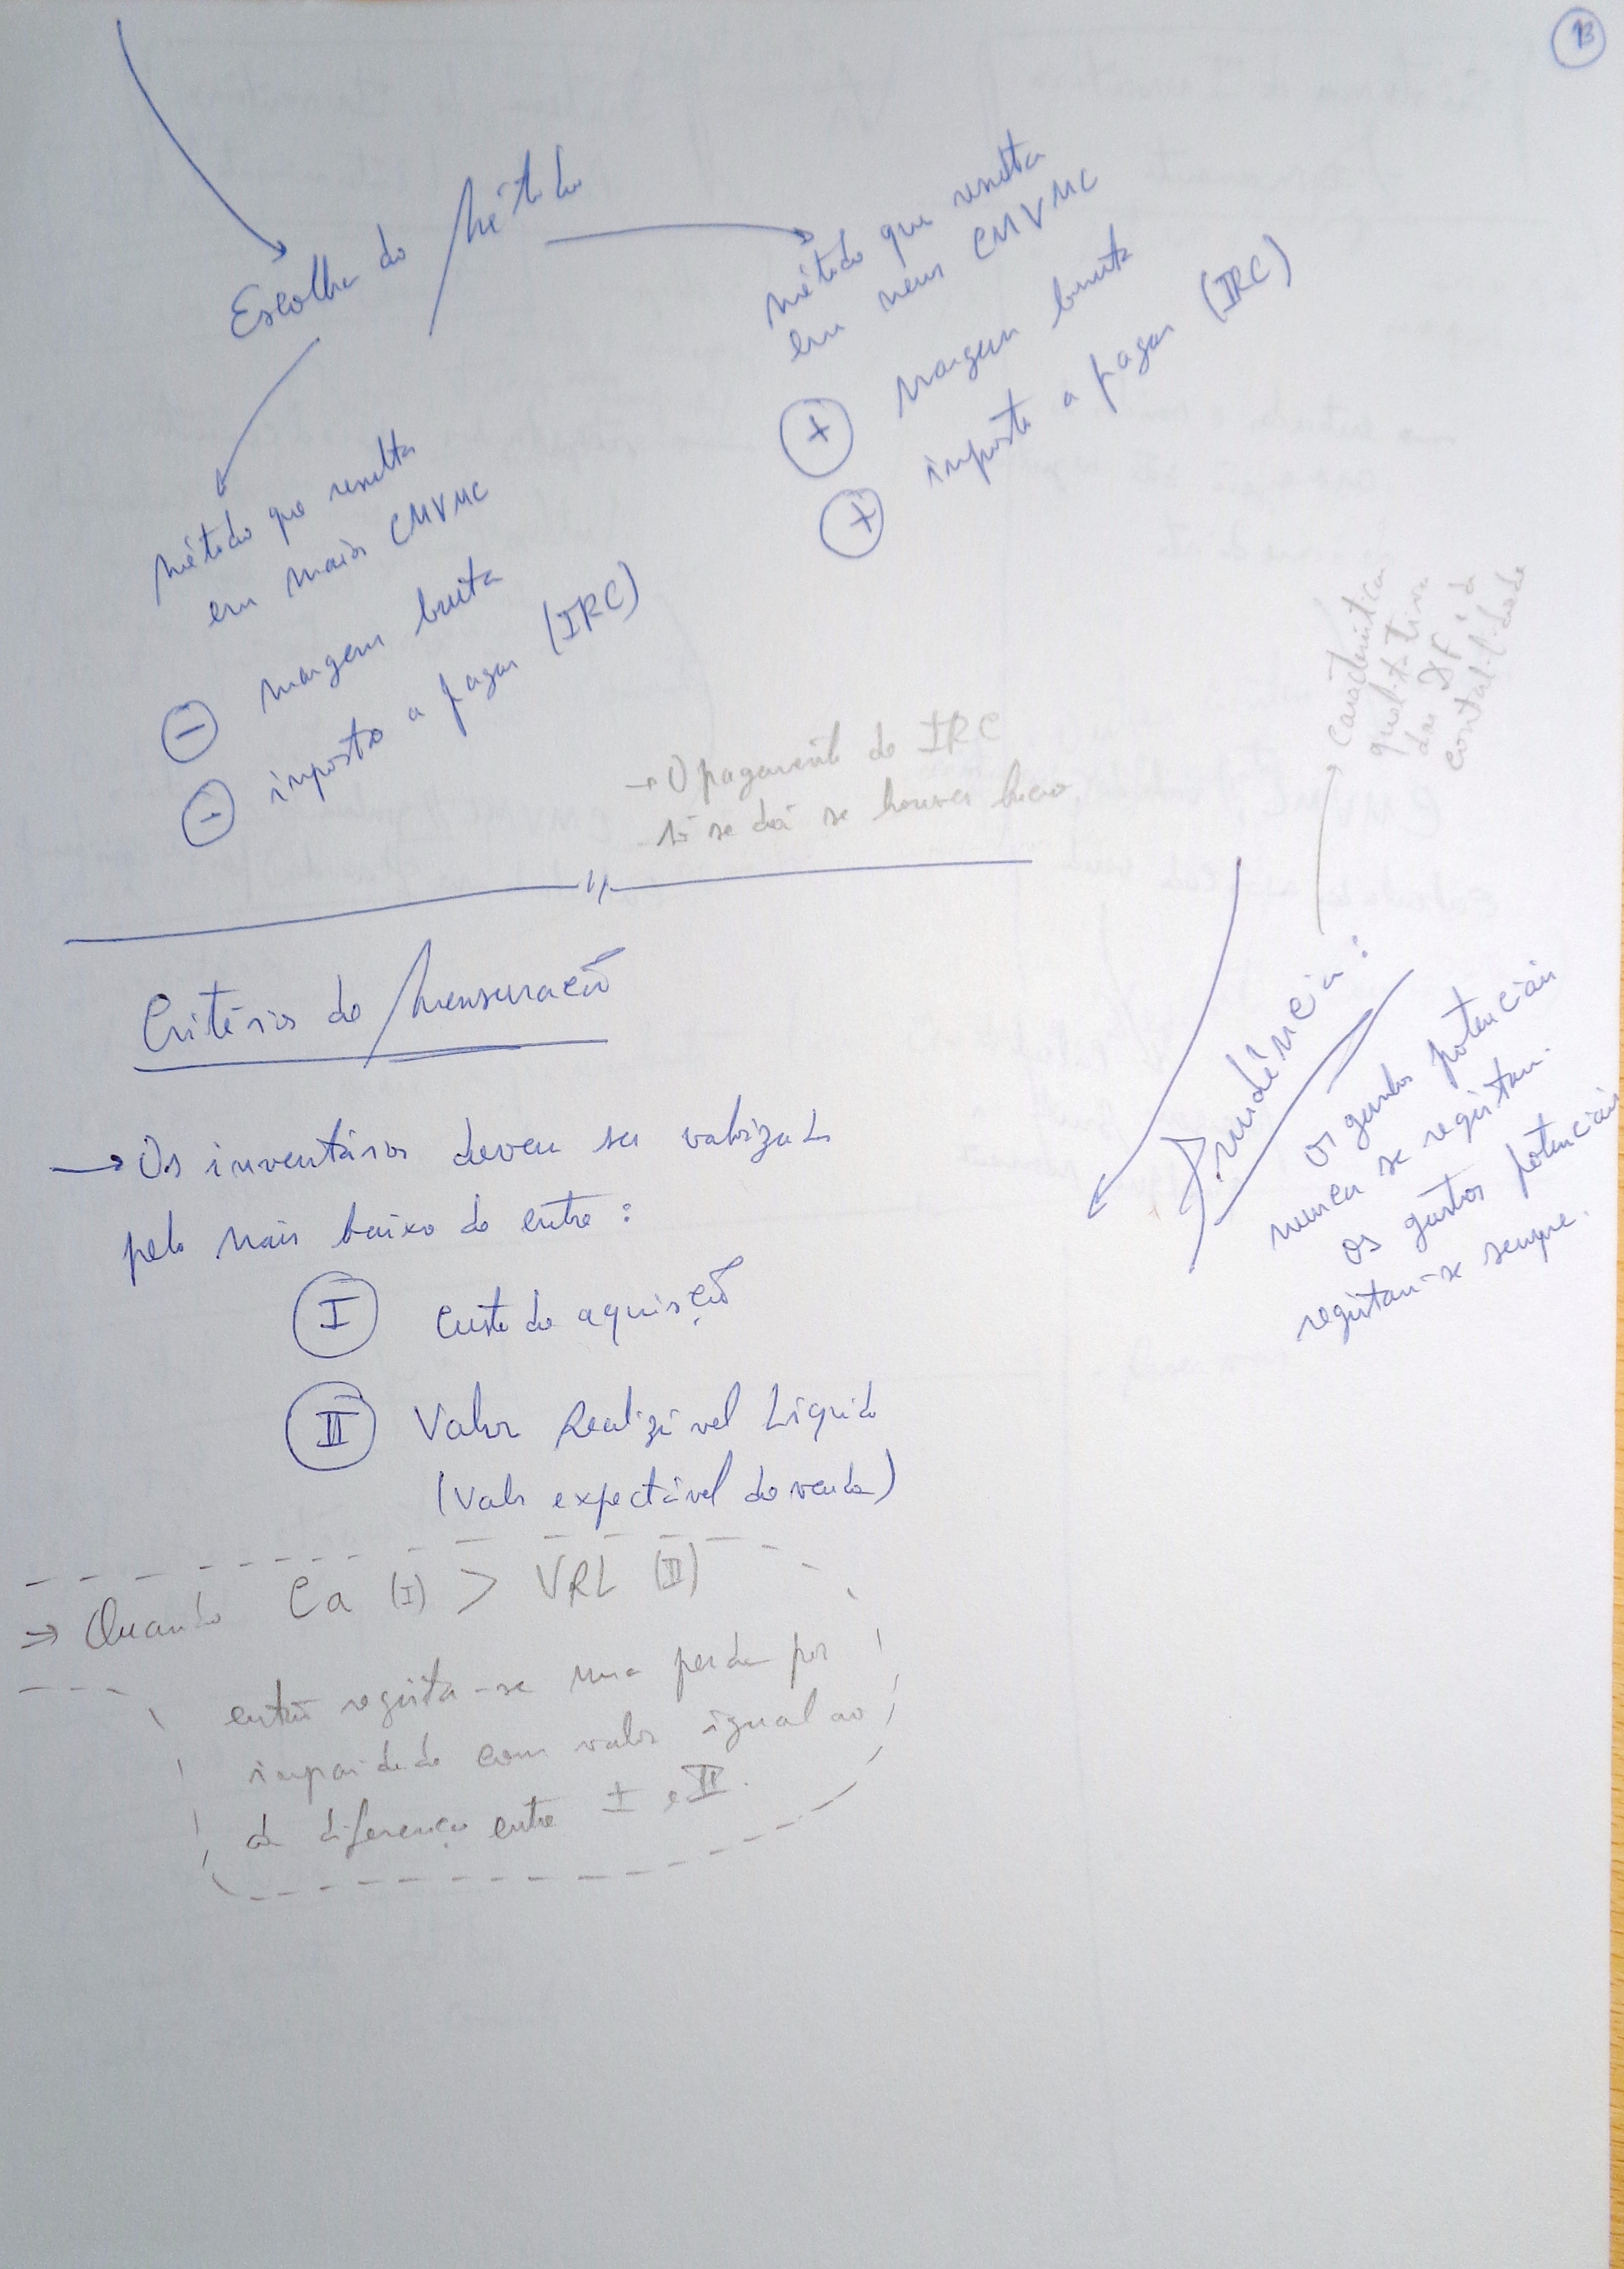 13
Escolha do Método
método que resulta
em menos CMVMC
+ margem bruta
+ imposto a pagar (IRC)
método que resulta
em maior CMVMC
- margem bruta
- imposto a pagar (IRC)
→ O pagamento do IRC
só se dá se houver lucro
característica
qualitativa
das DF's da
contabilidade
Critérios de Mensuração
Prudência:
os ganhos potenciais
nunca se registam.
os gastos potenciais
registam-se sempre.
→ Os inventários devem ser valorizados
pelo mais baixo de entre:
I Custo de aquisição
II Valor Realizável Líquido
(Valor expectável de venda)
⇒ Quando Ca (I) > VRL (II)
então regista-se uma perda por
imparidade com valor igual ao
da diferença entre I e II.